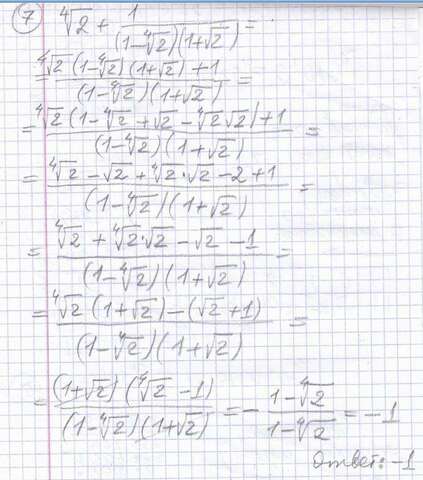 ⑦ ⁴√2 + 1/((1-⁴√2)(1+√2)) =
= (⁴√2 (1-⁴√2)(1+√2) + 1)/((1-⁴√2)(1+√2)) =
= (⁴√2 (1-⁴√2 + √2 - ⁴√2 √2) + 1)/((1-⁴√2)(1+√2)) =
= (⁴√2 - √2 + ⁴√2·√2 - 2 + 1)/((1-⁴√2)(1+√2)) =
= (⁴√2 + ⁴√2·√2 - √2 - 1)/((1-⁴√2)(1+√2)) =
= (⁴√2 (1+√2) - (√2 + 1))/((1-⁴√2)(1+√2)) =
= ((1+√2)(⁴√2 - 1))/((1-⁴√2)(1+√2)) = - (1-⁴√2)/(1-⁴√2) = -1
Ответ: -1